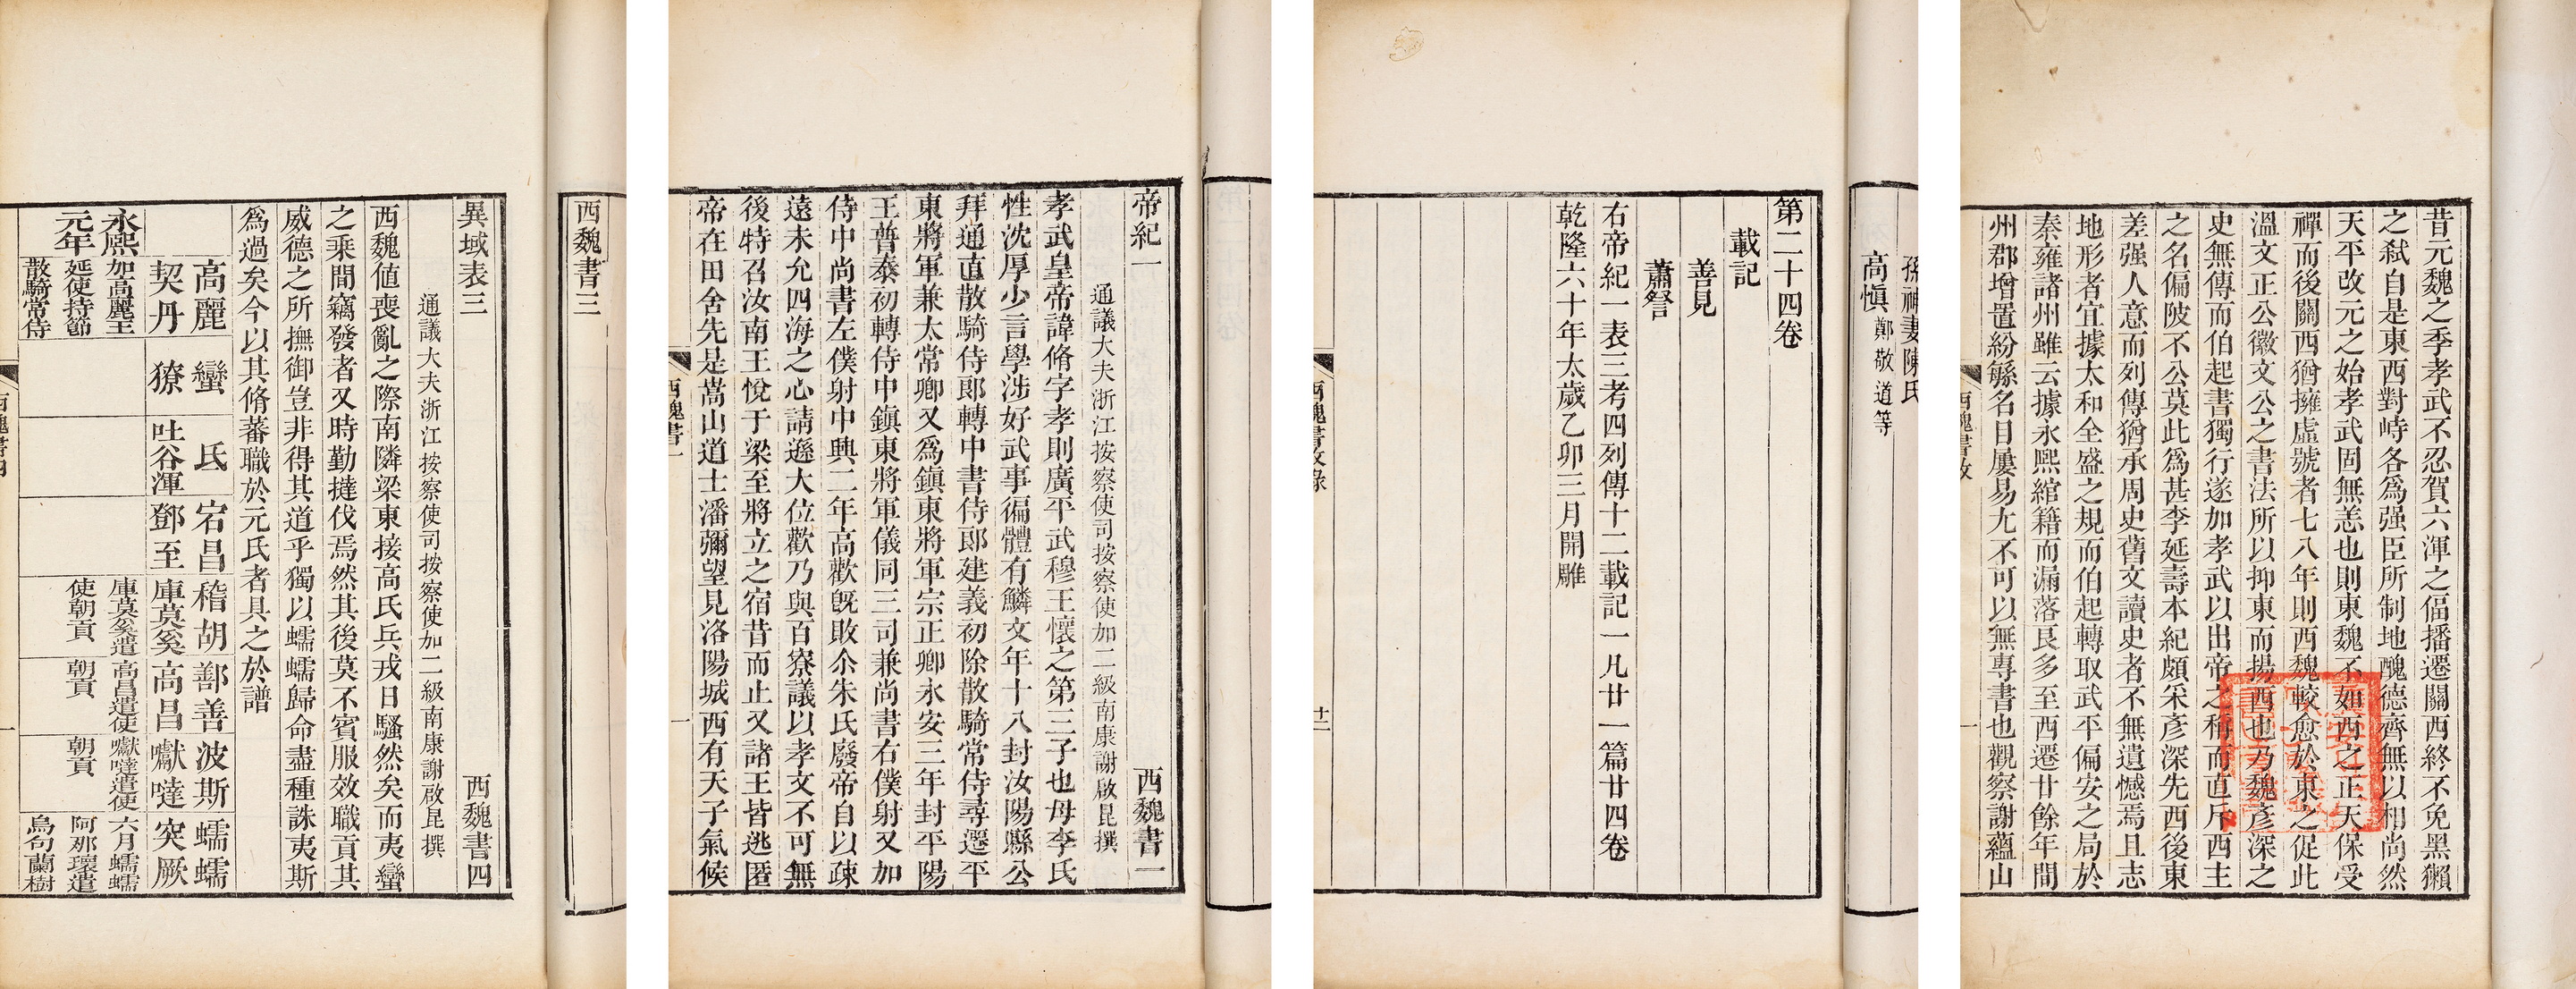 昔元魏之季孝武不忍賀六渾之偪播遷關西終不免黑獺
之弒自是東西對峙各爲强臣所制地醜德齊無以相尚然
天平改元之始孝武固無恙也則東魏不如西之正天保受
禪而後關西猶擁虛號者七八年則西魏較愈於東之促此
溫文正公徽文公之書法所以抑東而揚西也乃魏彥深之
史無傳而伯起書獨行遂加孝武以出帝之稱而直斥西主
之名偏陂不公莫此爲甚李延壽本紀頗采彥深先西後東
差强人意而列傳猶承周史舊文讀史者不無遺憾焉且志
地形者宜據太和全盛之規而伯起轉取武平偏安之局於
秦雍諸州雖云據永熙綰籍而漏落良多至西遷廿餘年間
州郡增置紛緐名目屢易尤不可以無專書也觀察謝蘊山
西魏書敘
一
孫神妻陳氏
高愼 鄭敬道等
第二十四卷
載記
善見
蕭詧
右帝紀一表三考四列傳十二載記一凡廿一篇廿四卷
乾隆六十年太歲乙卯三月開雕
西魏書敘錄
廿二
帝紀一 西魏書一
通議大夫浙江按察使司按察使加二級南康謝啟昆撰
孝武皇帝諱脩字孝則廣平武穆王懷之第三子也母李氏
性沈厚少言學涉好武事徧體有鱗文年十八封汝陽縣公
拜通直散騎侍郎轉中書侍郎建義初除散騎常侍尋遷平
東將軍兼太常卿又爲鎭東將軍宗正卿永安三年封平陽
王普泰初轉侍中鎭東將軍儀同三司兼尚書右僕射又加
侍中尚書左僕射中興二年高歡旣敗尒朱氏廢帝自以疎
遠未允四海之心請遜大位歡乃與百寮議以孝文不可無
後特召汝南王悅于梁至將立之宿昔而止又諸王皆逃匿
帝在田舍先是嵩山道士潘彌望見洛陽城西有天子氣候
西魏書一
一
西魏書三
異域表三 西魏書四
通議大夫浙江按察使司按察使加二級南康謝啟昆撰
西魏値喪亂之際南隣梁東接高氏兵戎日騷然矣而夷蠻
之乘間竊發者又時勤撻伐焉然其後莫不賓服效職貢其
威德之所撫御豈非得其道乎獨以蠕蠕歸命盡種誅夷斯
爲過矣今以其脩蕃職於元氏者具之於譜
高麗 蠻 氐 宕昌 稽胡 鄯善 波斯 蠕蠕
契丹 獠 吐谷渾 鄧至 庫莫奚 高昌 嚈噠 突厥
永熙 加高麗王 庫莫奚遣 高昌遣使 嚈噠遣使 六月蠕蠕
元年 延使持節 使朝貢 朝貢 朝貢 阿那瓌遣
散騎常侍 烏句蘭樹
西魏書四
一